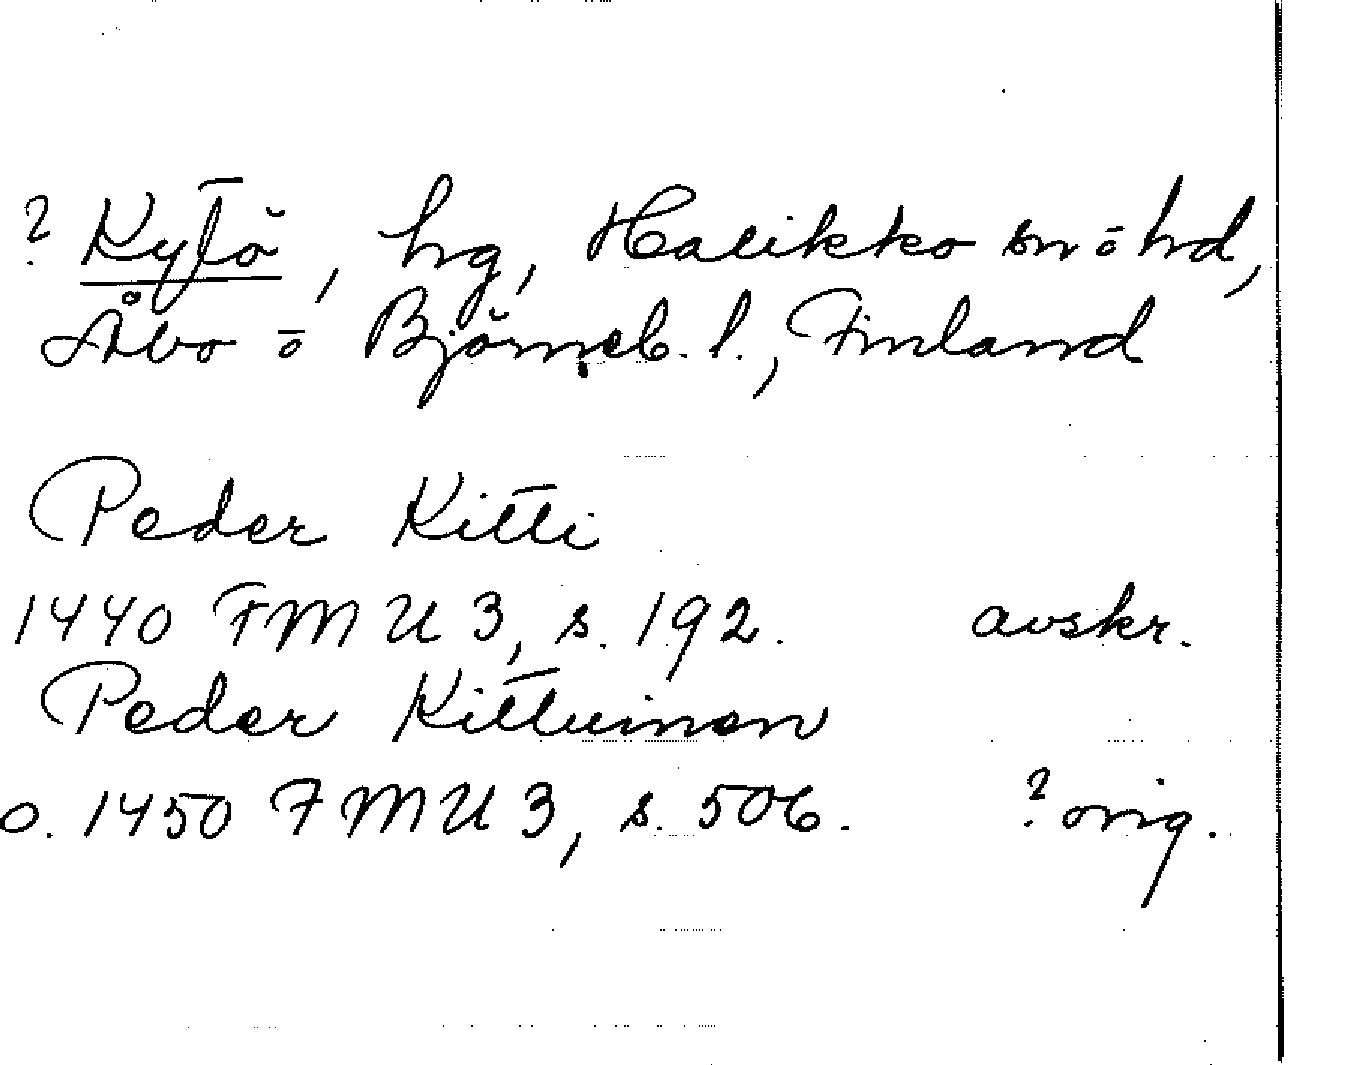 ? Kytö, hg, Halikko sn o hd,
Åbo o Björneb. l., Finland
Peder Kitti
1440 FMU 3, s. 192. avskr.
Peder Kittuinen
o. 1450 FMU 3, s. 506. ? orig.